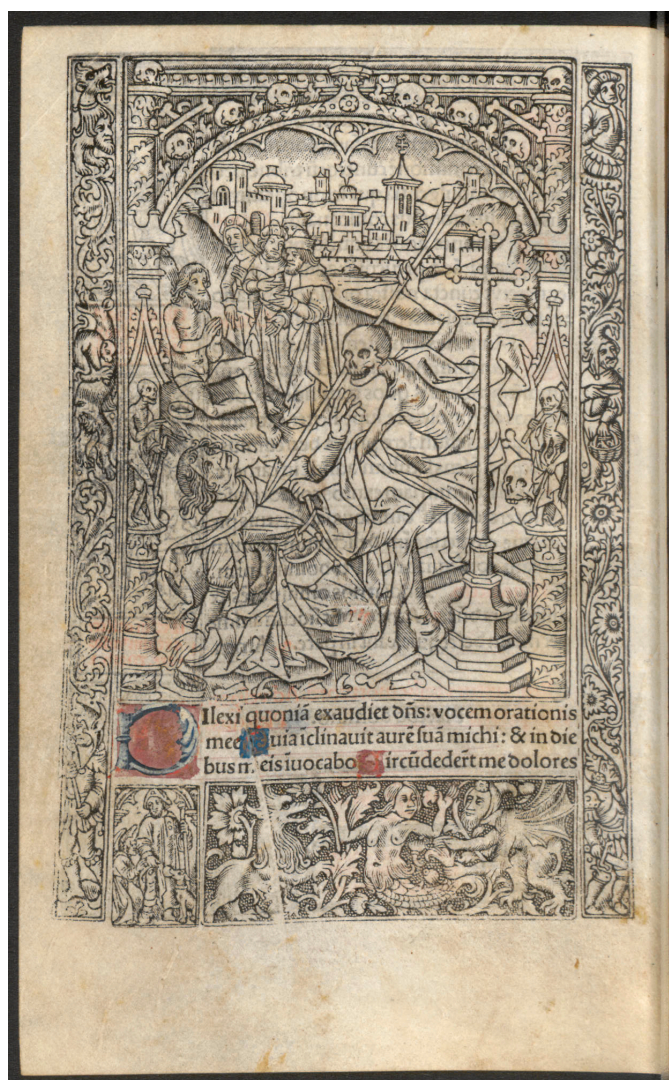 DIlexi quoniã exaudiet dñs: vocem orationis
mee Quia ĩclinauit aurẽ suã michi: & in die
bus meis iuocabo Circũdedert̃ me dolores